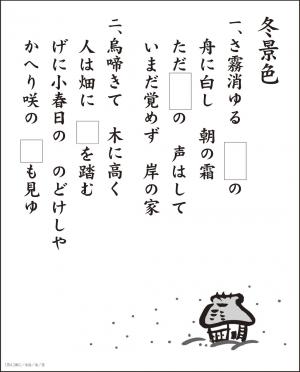 冬景色
一、さ霧消ゆる □の
舟に白し 朝の霜
ただ□の 声はして
いまだ覚めず 岸の家
二、烏啼きて 木に高く
人は畑に □を踏む
げに小春日の のどけしや
かへり咲の □も見ゆ